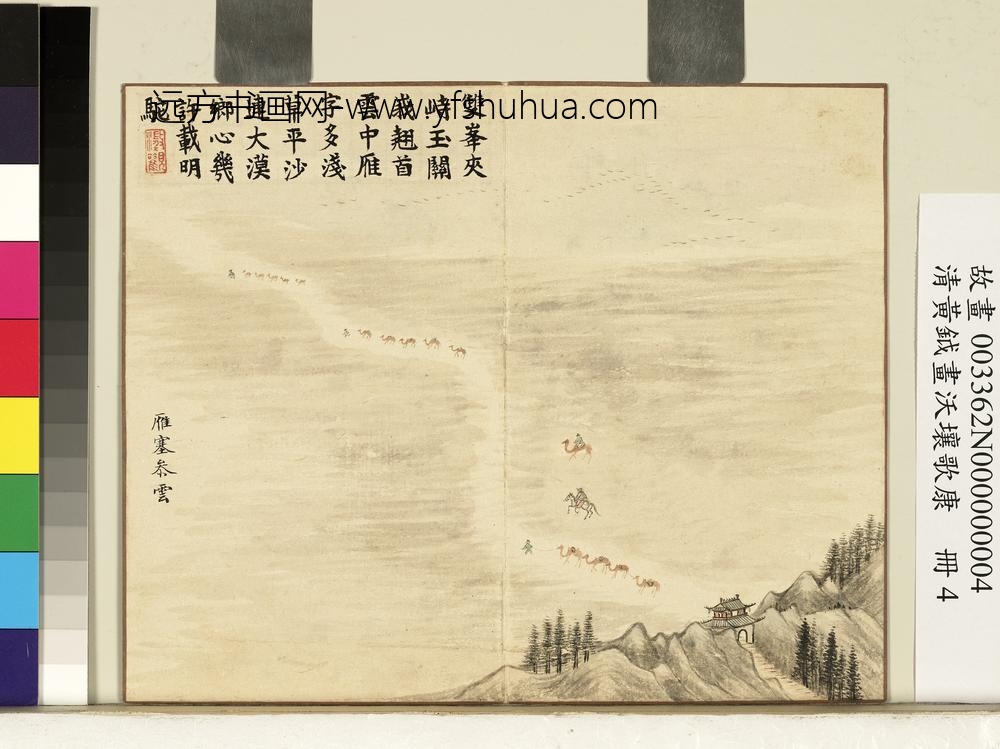 远方书画网-www.yfshuhua.com
雙峯夾
峙玉關
峩翹首
雲中雁
字多淺
草平沙
連大漠
鄉心幾
許載明
駝
雁塞叅雲
故畫 003362N000000004
清黃鉞畫沃壤歌康 冊 4